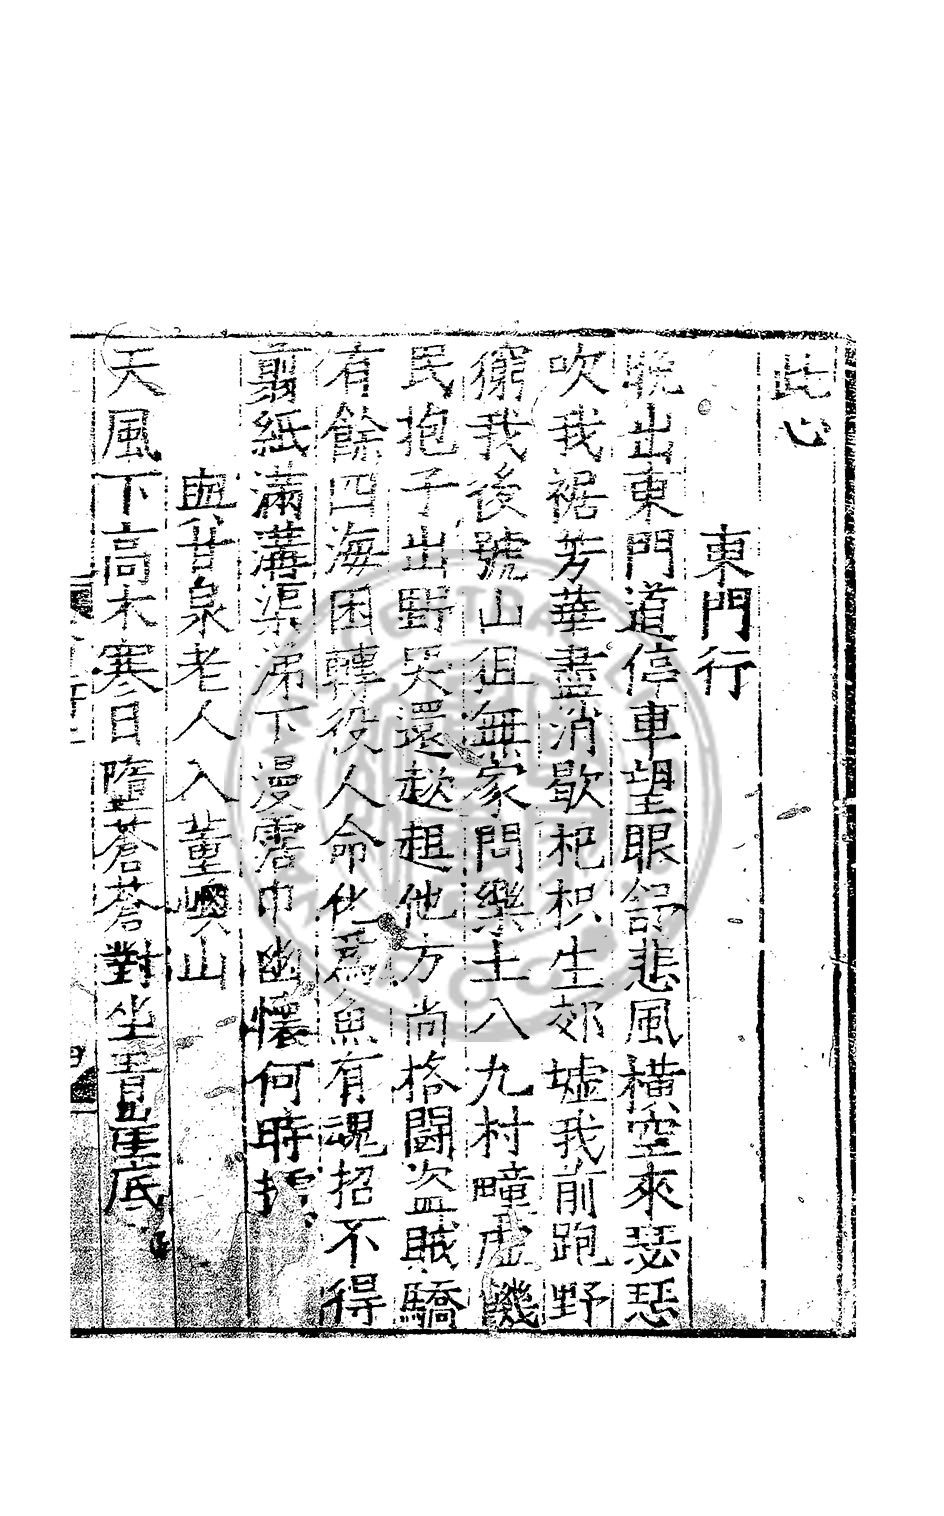 此心
東門行
晩出東門道停車望眼舒悲風橫空來瑟瑟
吹我裾芳華盡消歇杞枳生郊墟我前跑野
獨我後號山狙無家問樂土八九村疃虛饑
民抱子出野哭還趑趄他方尚格鬪盜賊驕
有餘四海困轉役人命化爲魚有魂招不得
剪紙滿溝渠涕下漫霑巾幽懷何時攄
與甘泉老人入董嶼山
天風下高木寒日墮蒼蒼對坐青崖底